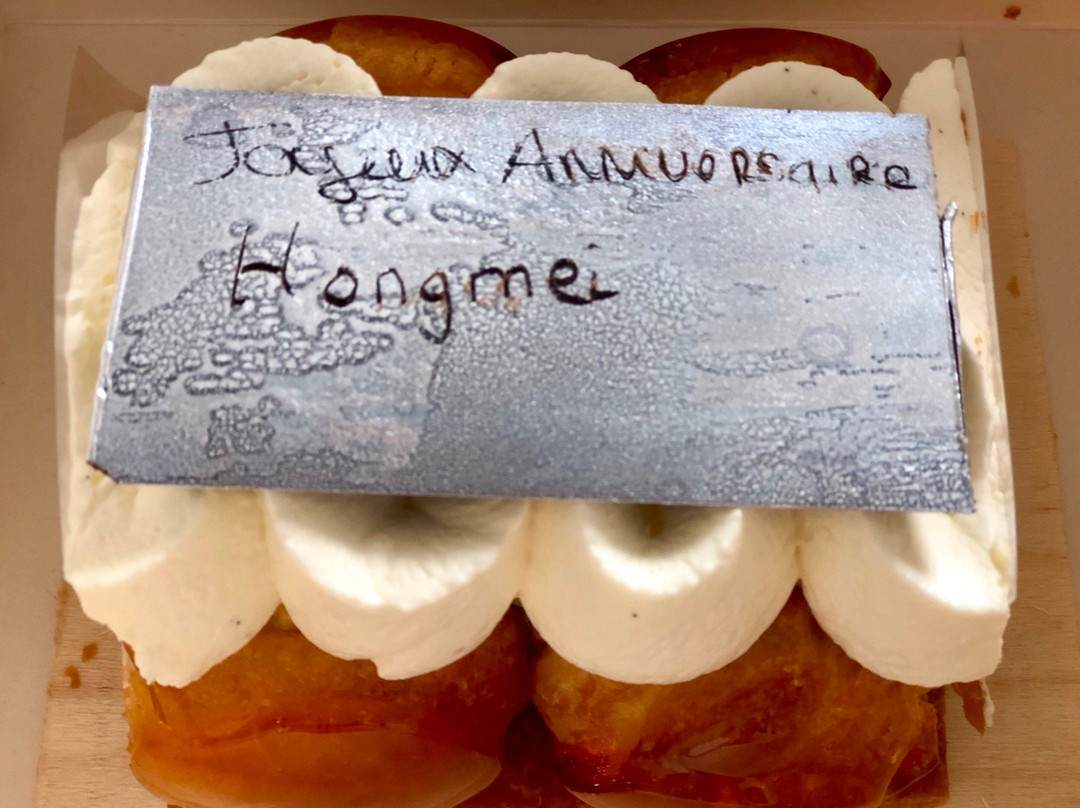 Joyeux Anniversaire
Hongmei